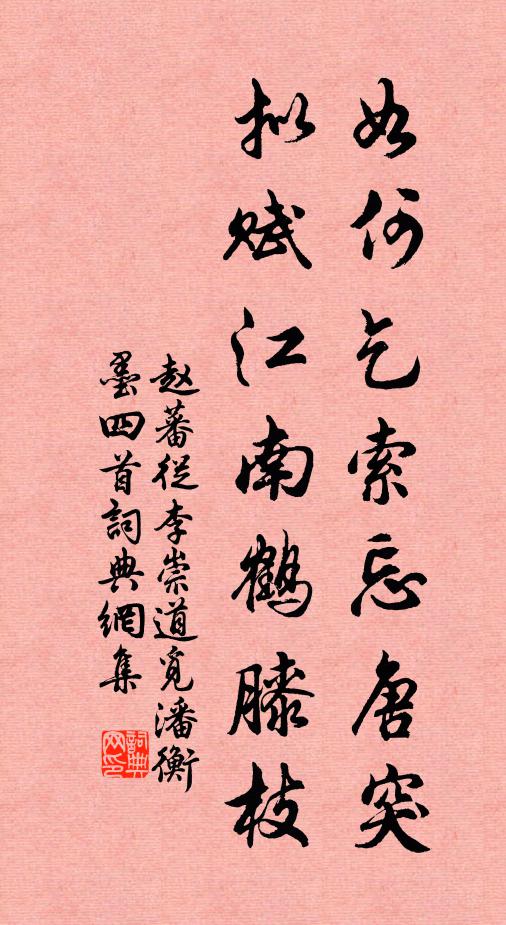 如何乞索忘唐突
拟赋江南鹤膝枝
赵蕃從李崇道觅潘衡
墨四首詞典網集
詞典网印